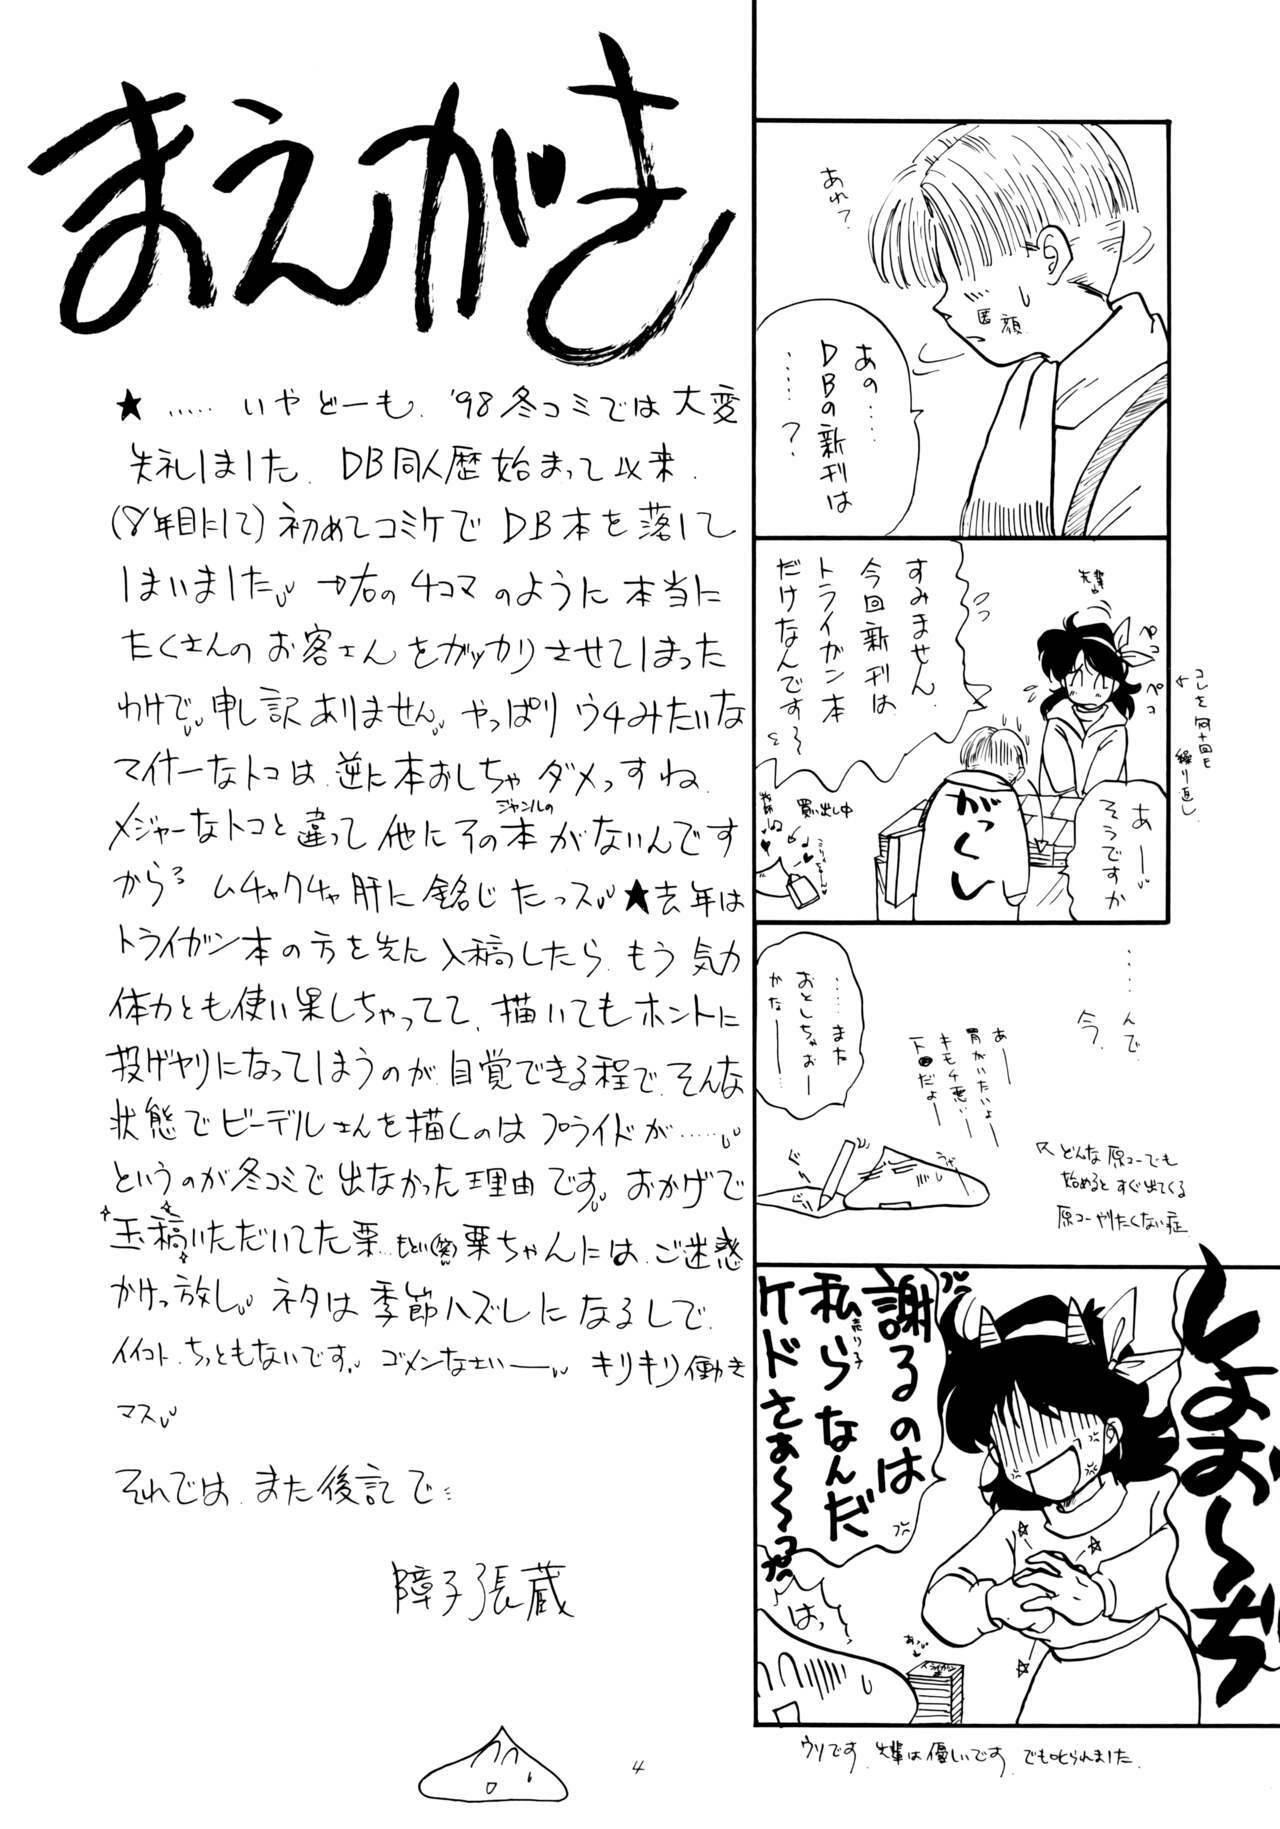 まえがき
★……いやどーも、'98冬コミでは大変
失礼しました。DB同人歴始まって以来
(8年目にして)初めてコミケでDB本を落して
しまいました。→右の4コマのように本当に
たくさんのお客さんをガッカリさせてしまった
わけで。申し訳ありません。やっぱりウチみたいな
マイナーなトコは、逆に本おしちゃダメっすね。
メジャーなトコと違って他にそのジャンルの本がないんです
から。ムチャクチャ肝に銘じたっス。★去年は
トライガン本の方を先に入稿したら、もう気力
体力とも使い果しちゃってて、描いてもホントに
投げヤリになってしまうのが自覚できる程で、そんな
状態でビーデルさんを描くのはプライドが……。
というのが冬コミで出なかった理由です。おかげで
玉稿いただいてた栗…もとい(笑)栗ちゃんには、ご迷惑
かけっ放し。ネタは季節ハズレになるしで、
イイコト、ちっともないです。ゴメンなさいーー。キリキリ働き
マス。
それでは、また後記で…
障子張蔵
4
あれ?
匿顔
あの……
DBの新刊は
……?
すみません
今回新刊は
トライガン本
だけなんです〜
先輩
ペコ
ペコ
コレを何十回も
繰り返し
あー
そうですか
がっくし
買い出し中
……んで、
今、
……また
おとしちゃおー
かなー
あー
胃がいたいよー
キモチ悪いー
だよー
ぐり
ぐり
どんな原コーでも
始めるとすぐ出てくる
原コーやりたくない症
しょお〜ぢ
謝るのは
私ら売り子なんだ
ケドさぁ〜〜っ
はっ
あっ
トライガン
ウソです。先輩は優しいです。でも叱られました。